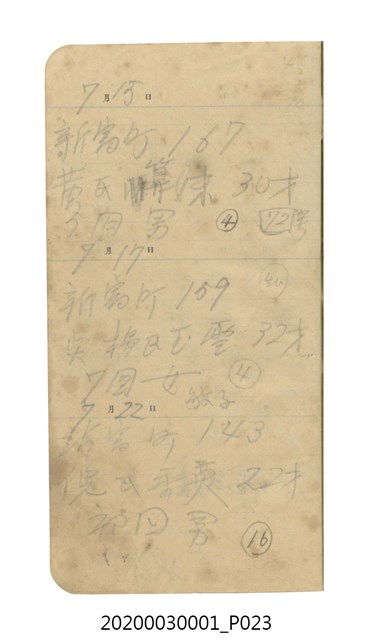 7月15日
新富町 167
黄氏 算 30才
今回 男 ④ 72
7月17日
新富町 159
吳梅氏玉雪 32才
7回 女 ④
7月22日 敏子
新富町 143
氏 22才
初回 男 ⑯
20200030001_P023